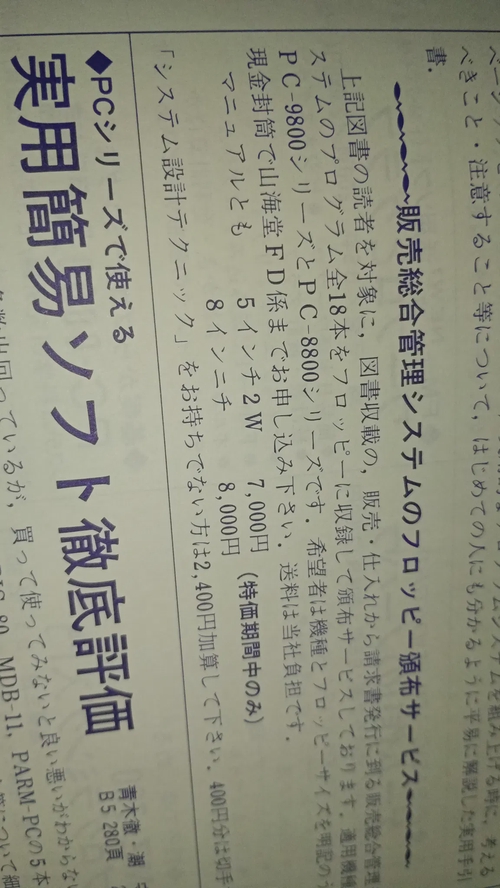 べきこと・注意すること等について，はじめての人にも分かるように平易に解説した実用手引
書．
販売総合管理システムのフロッピー頒布サービス
上記図書の読者を対象に，図書収載の，販売・仕入れから請求書発行に到る販売総合管理
ステムのプログラム全18本をフロッピーに収録して頒布サービスしております．適用機種
PC-9800シリーズとPC-8800シリーズです．希望者は機種とフロッピーサイズを明記のう
現金封筒で山海堂FD係までお申し込み下さい．送料は当社負担です．
マニュアルとも 5インチ2W 7,000円（特価期間中のみ）
8インニチ 8,000円
「システム設計テクニック」をお持ちでない方は2,400円加算して下さい．400円分は切手
◆PCシリーズで使える
実用簡易ソフト徹底評価
青木徹・潮
B5 280頁
出回っているが，買って使ってみないと良い悪いがわからない
MDB-11，PARM-PCの5本